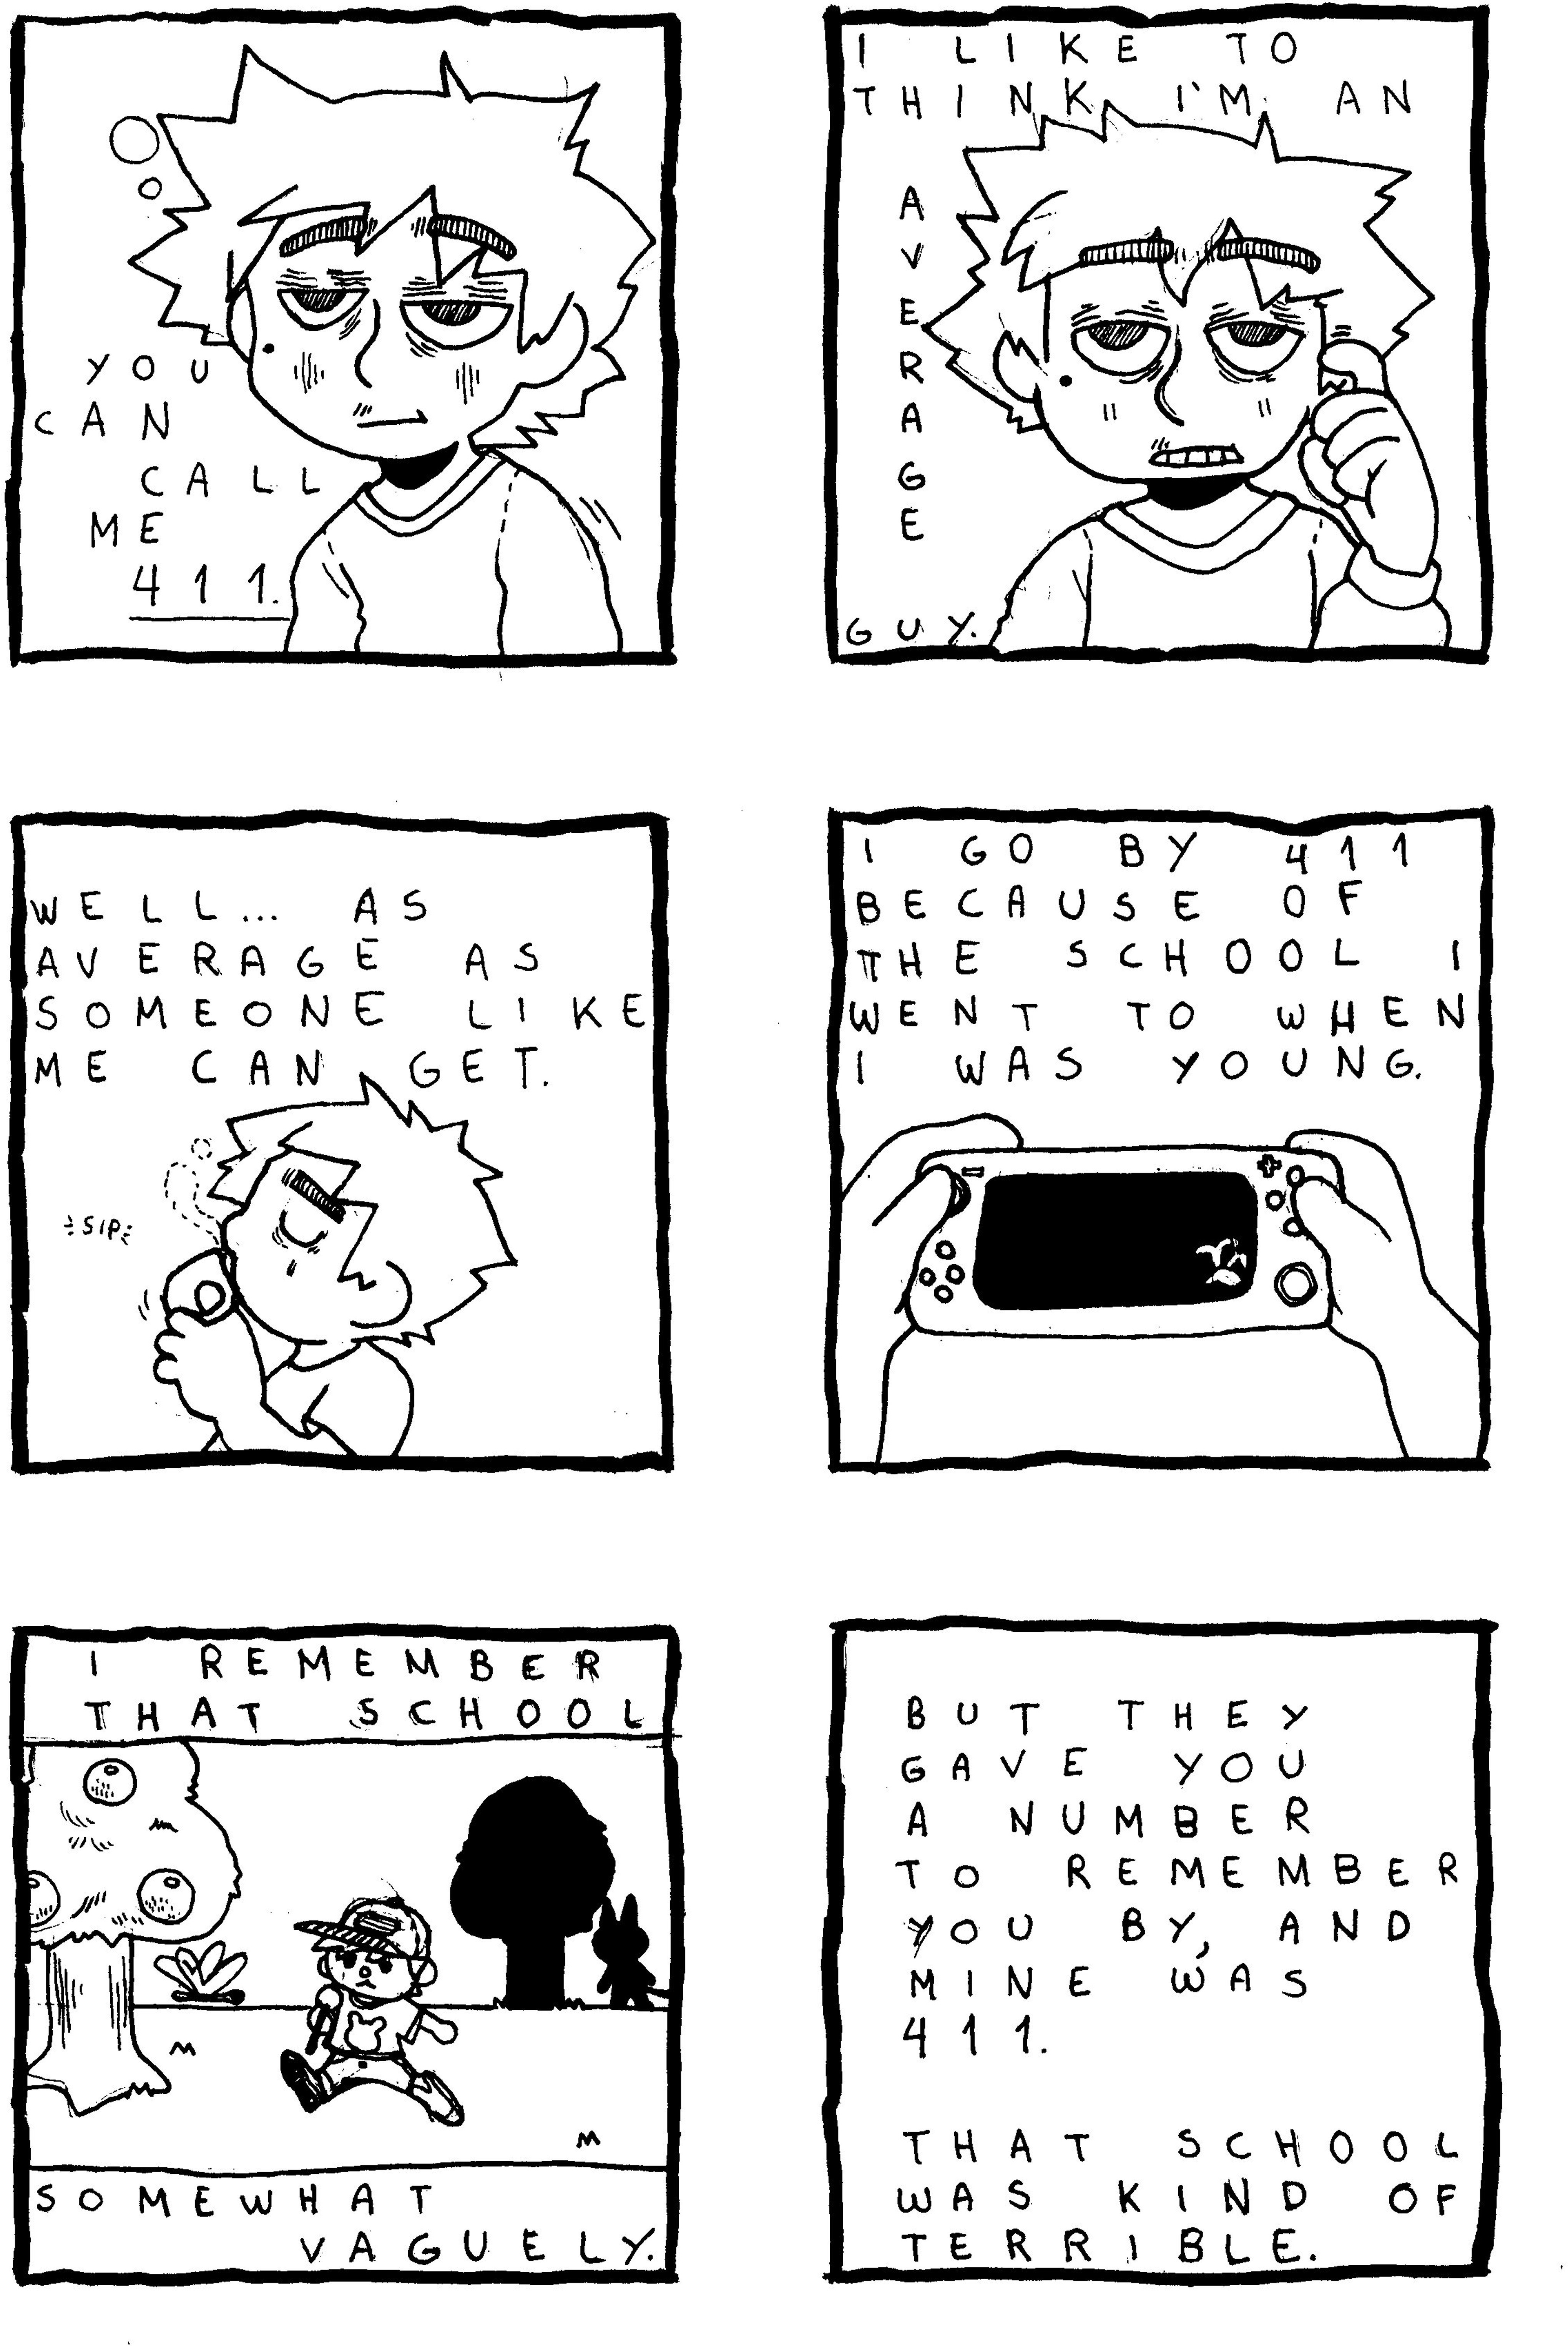 YOU
CAN
CALL
ME
411.
I LIKE TO
THINK I'M AN
AVERAGE
GUY.
WELL... AS
AVERAGE AS
SOMEONE LIKE
ME CAN GET.
SIP
I GO BY 411
BECAUSE OF
THE SCHOOL I
WENT TO WHEN
I WAS YOUNG.
I REMEMBER
THAT SCHOOL
SOMEWHAT
VAGUELY.
BUT THEY
GAVE YOU
A NUMBER
TO REMEMBER
YOU BY, AND
MINE WAS
411.
THAT SCHOOL
WAS KIND OF
TERRIBLE.